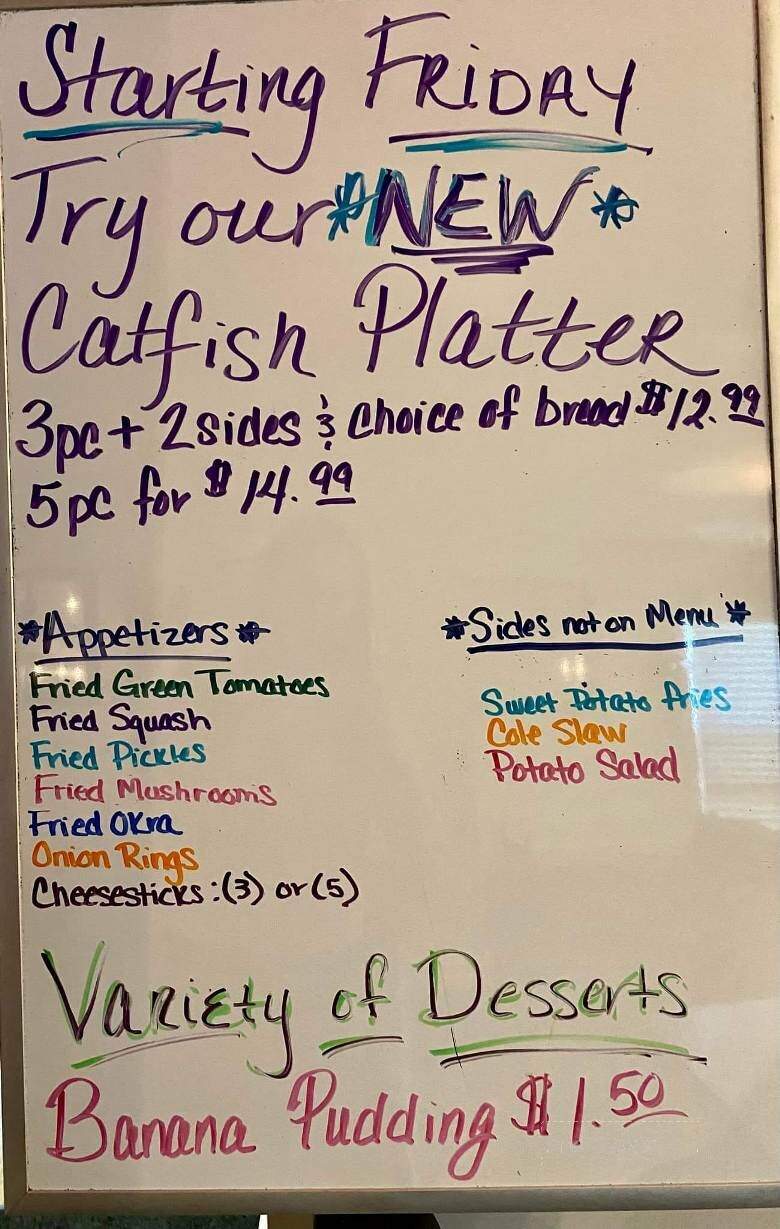 Starting FRiDAY
Try our *NEW*
Catfish Platter
3pc + 2 sides & Choice of bread $12.99
5 pc for $14.99
*Appetizers*
Fried Green Tomatoes
Fried Squash
Fried Pickles
Fried Mushrooms
Fried Okra
Onion Rings
Cheesesticks: (3) or (5)
*Sides not on Menu*
Sweet Potato fries
Cole Slaw
Potato Salad
Variety of Desserts
Banana Pudding $1.50